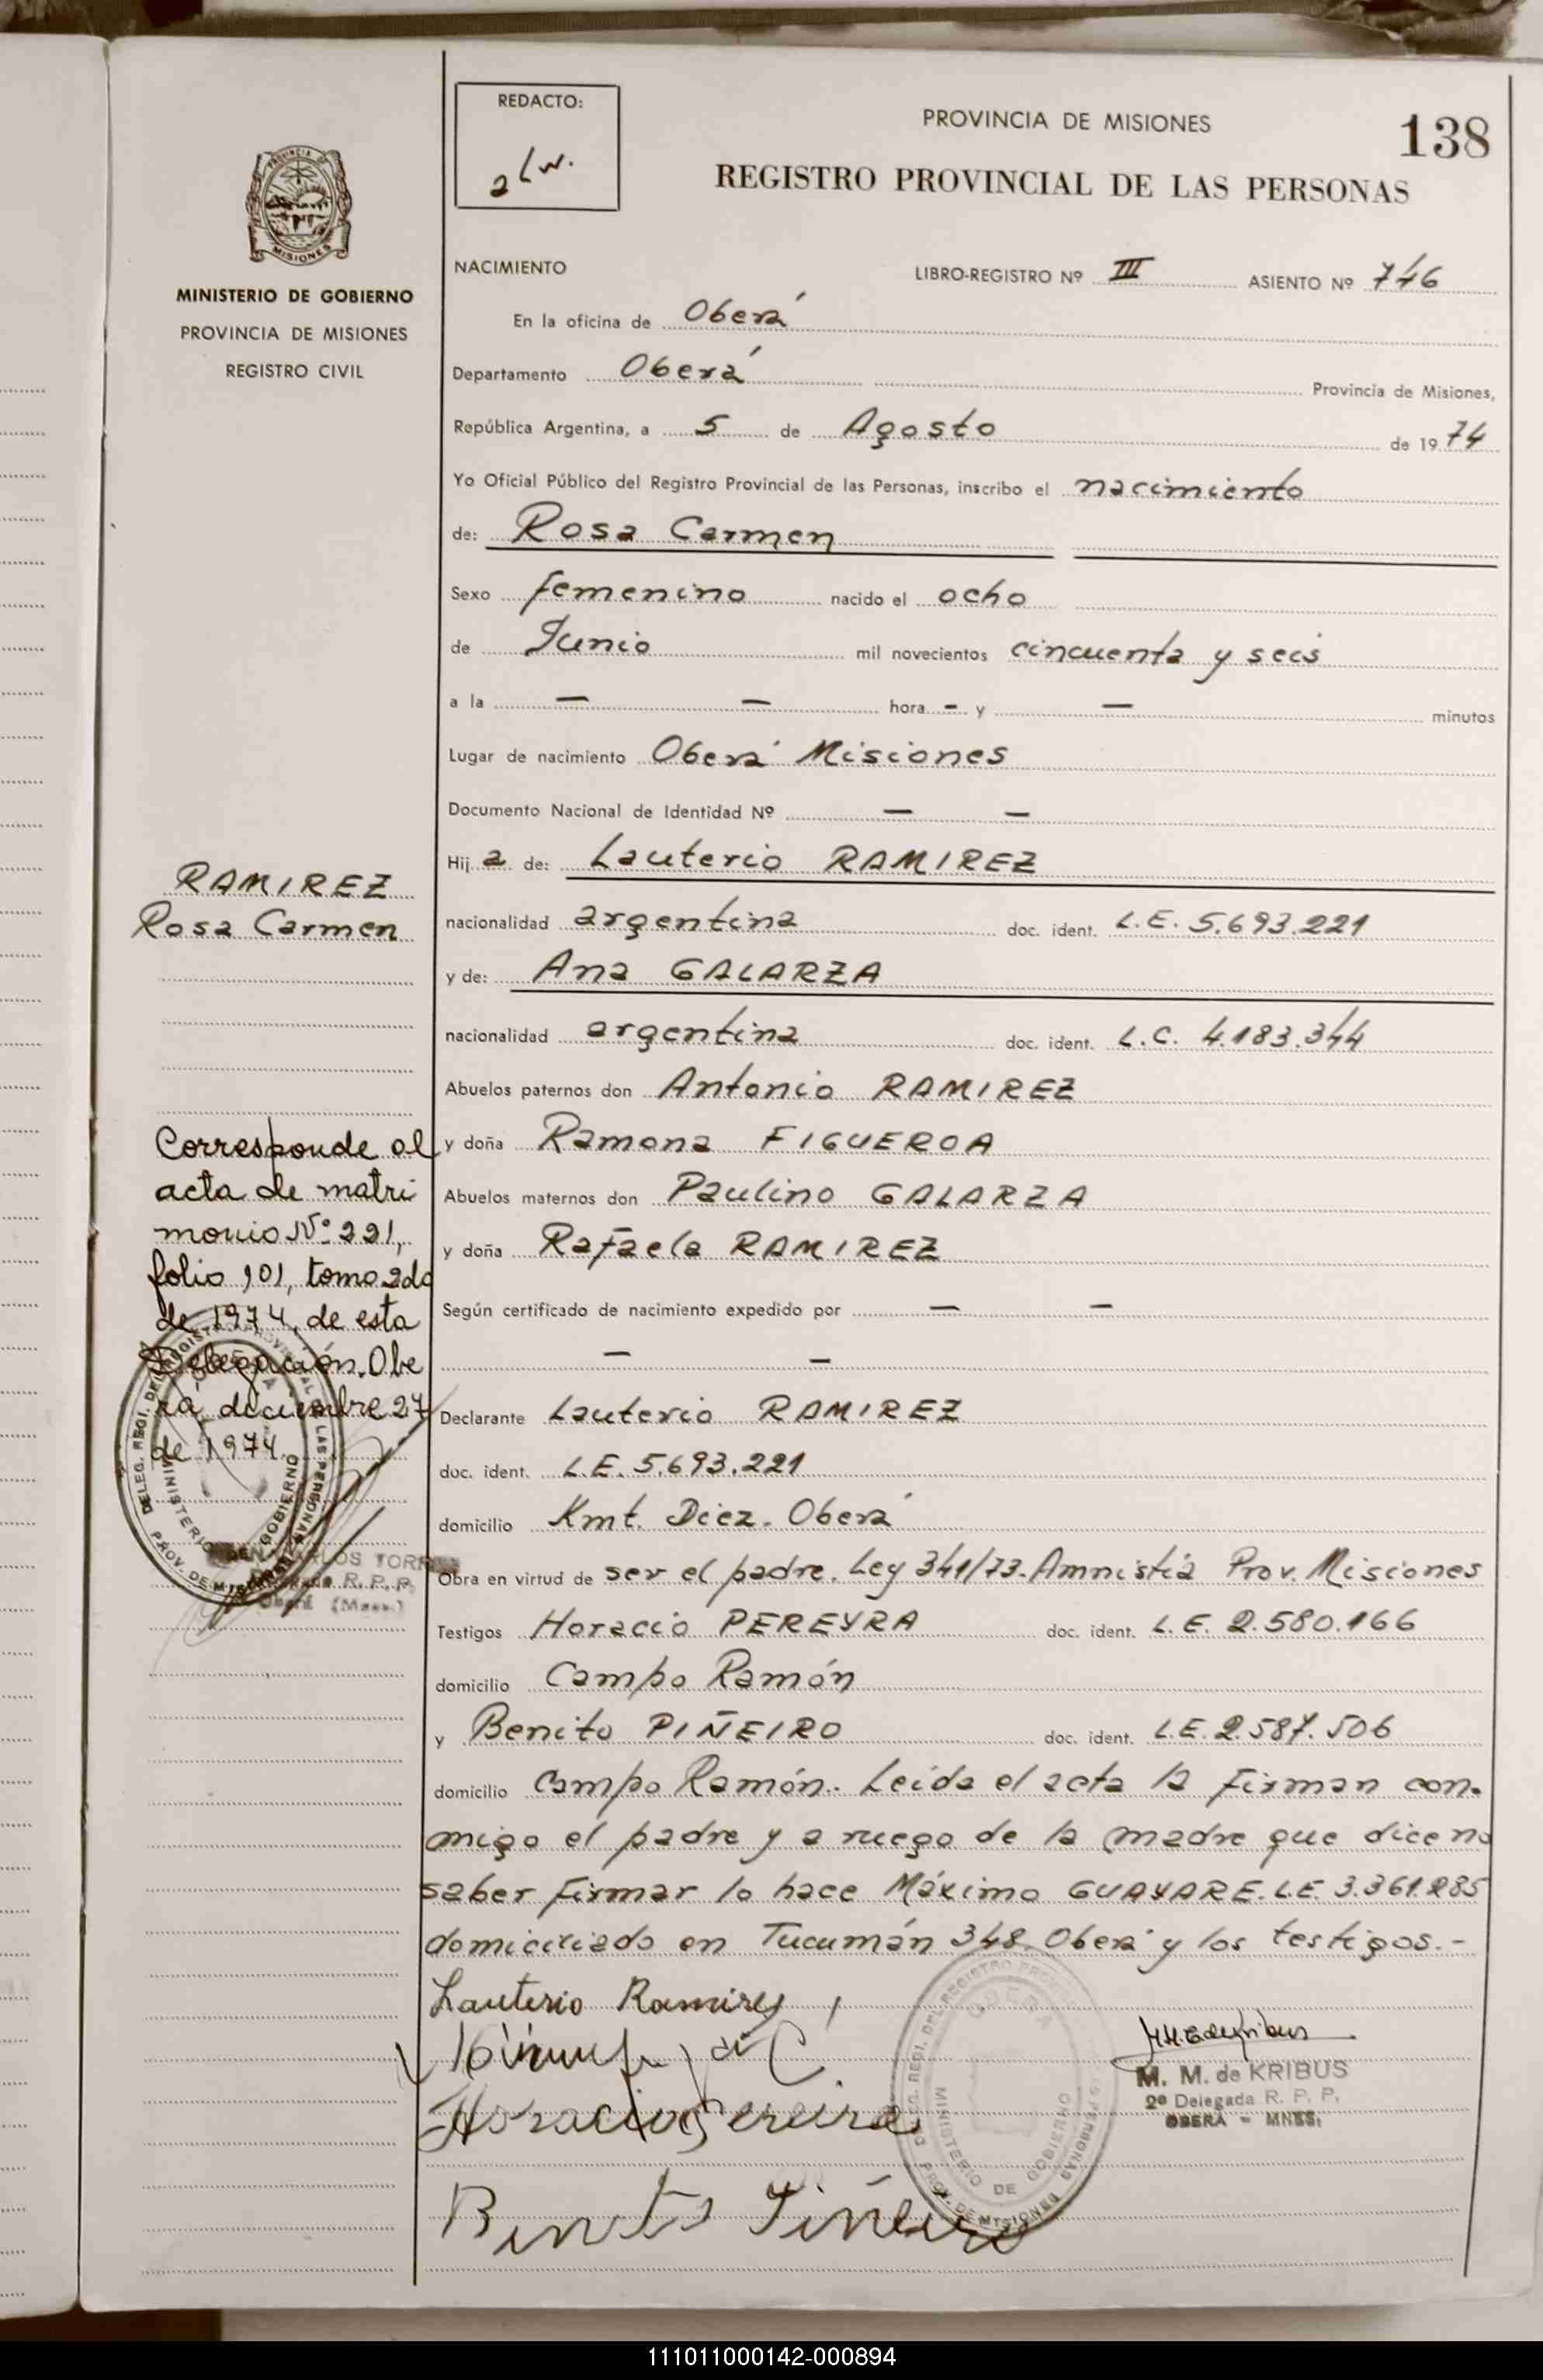 REDACTO:
PROVINCIA DE MISIONES
138
REGISTRO PROVINCIAL DE LAS PERSONAS
MISIONES
MINISTERIO DE GOBIERNO
PROVINCIA DE MISIONES
REGISTRO CIVIL
NACIMIENTO LIBRO-REGISTRO Nº III ASIENTO Nº 746
En la oficina de Oberá
Departamento Oberá Provincia de Misiones,
República Argentina, a 5 de Agosto de 1974
Yo Oficial Público del Registro Provincial de las Personas, inscribo el nacimiento
de: Rosa Carmen
Sexo femenino nacido el ocho
de Junio mil novecientos cincuenta y seis
a la — — hora - y — minutos
Lugar de nacimiento Oberá Misiones
Documento Nacional de Identidad Nº — —
Hija de: Lauterio RAMIREZ
nacionalidad argentina doc. ident. L.E. 5.693.221
y de: Ana GALARZA
nacionalidad argentina doc. ident. L.C. 4.183.344
Abuelos paternos don Antonio RAMIREZ
y doña Ramona FIGUEROA
Abuelos maternos don Paulino GALARZA
y doña Rafaela RAMIREZ
Según certificado de nacimiento expedido por — —
— —
Declarante Lauterio RAMIREZ
doc. ident. L.E. 5.693.221
domicilio Kmt. Diez. Oberá
Obra en virtud de ser el padre. Ley 341/73. Amnistía Prov. Misiones
Testigos Horacio PEREYRA doc. ident. L.E. 2.580.166
domicilio Campo Ramón
y Benito PIÑEIRO doc. ident. L.E. 2.587.506
domicilio Campo Ramón. Leída el acta la firman con-
migo el padre y a ruego de la madre que dice no
saber firmar lo hace Máximo GUAYARE. L.E. 3.361.285
domiciliado en Tucumán 348. Oberá y los testigos.-
RAMIREZ
Rosa Carmen
Corresponde al
acta de matri
monio Nº 221,
folio 101, tomo 2do
de 1974, de esta
Delegación. Obe
rá, diciembre 27
de 1974.
DELEG. REGI. DEL REGISTRO PROVINCIAL DE LAS PERSONAS
MINISTERIO DE GOBIERNO
PROV. DE MISIONES
CARLOS TORR
R. P. P.
Oberá (Mnes.)
Lauterio Ramirez
Horacio Pereira
Benito Piñeiro
OBERA
MINISTERIO DE GOBIERNO
PROV. DE MISIONES
M. M. de KRIBUS
2ª Delegada R. P. P.
OBERA - MNES.
111011000142-000894